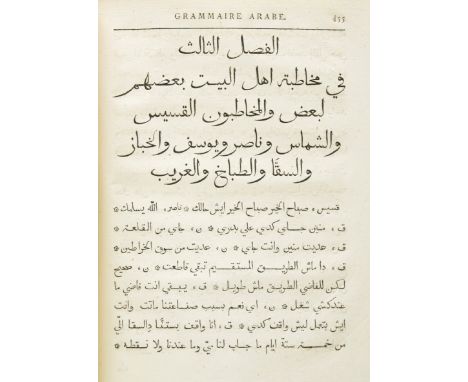 GRAMMAIRE ARABE. 455
الفصل الثالث
في مخاطبة اهل البيت بعضهم
لبعض والمخاطبون القسيس
والشماس وناصر ويوسف والخباز
والسقا والطباخ والغريب
قسيس، صباح الخير صباح الخير ايش حالك * ناصر، الله يسلمك *
ق، منين جاي كدي علي بدري * ن، جاي من القلعة *
ق، عديت منين وانت جاي * ن، عديت من سوق الخراطين *
ق، دا ماش الطريق المستقيم تبقي قاطعت * ن، صحيح
لكن للقاضي الطريق ماش طويل * ق، يبقي انت قاضي ما
عندكشي شغل * ن، اي نعم بسبب صناعتنا ماتت وانت
ايش بتعمل ليش واقف كدي * ق، انا واقف بستنا دالسقا الي
من خمسة ستة ايام ما جاب لنا مي وما عندنا ولا نقطه *